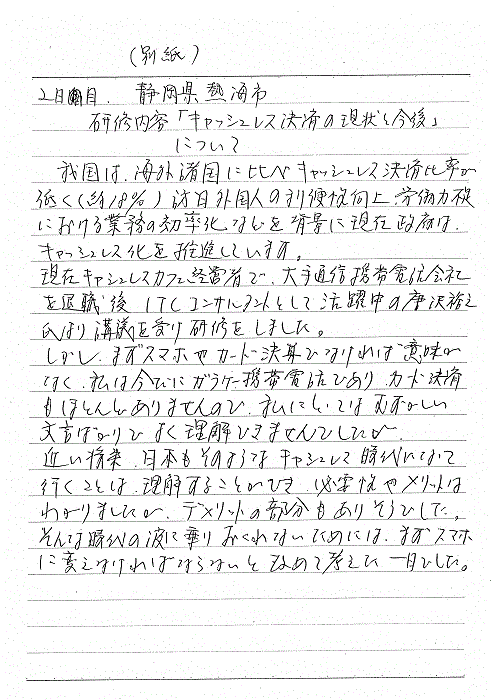 (別紙)
2日目. 静岡県熱海市
研修内容「キャッシュレス決済の現状と今後」
について
我国は、海外諸国に比べキャッシュレス決済比率が
低く(約18%)訪日外国人の利便性向上、労働力不足
における業務の効率化などを背景に現在政府は、
キャッシュレス化を推進しています。
現在キャシュレスカフェ経営者で、大手通信携帯電話会社
を退職後 ITCコンサルタントとして活躍中の唐沢
氏より講議を受け研修をしました。
しかし、まずスマホやカード決算でなければ意味が
なく、私は今だにガラケー携帯電話であり、カード決済
もほとんどありませんので、私にとってはむずかしい
文言ばかりでよく理解できませんでしたが、
近い将来、日本もそのようなキャシュレス時代になって
行くことは、理解することができ、必要性やメリットは
わかりましたが、デメリットの部分もありそうでした。
そんな時代の波に乗りおくれないためには、まずスマホ
に変えなければならないとなめて考えた一日でした。